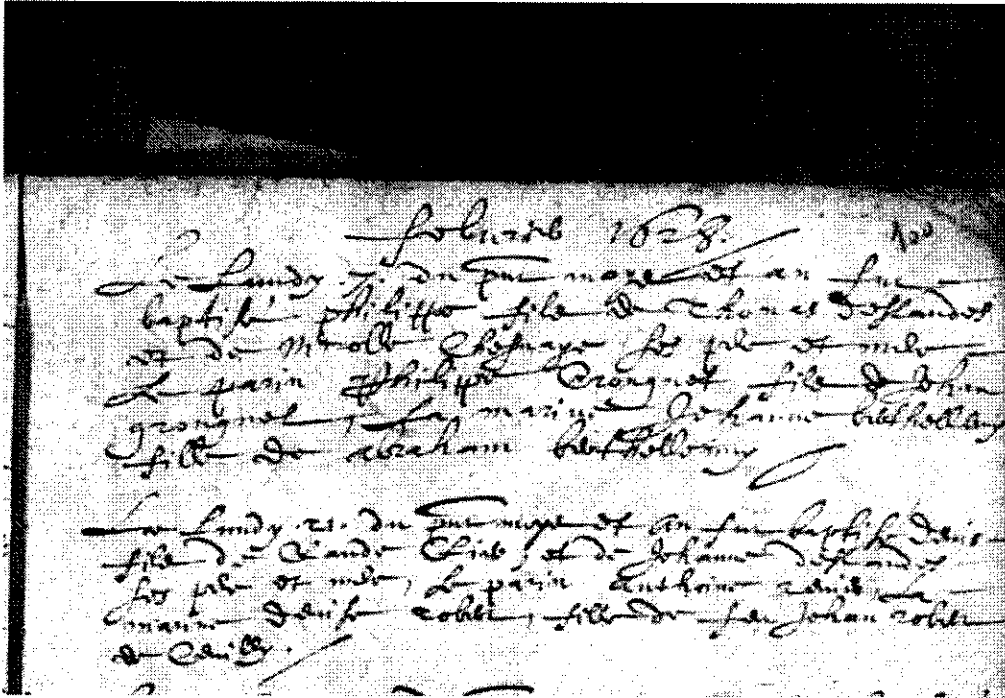 febvrier 1628. 100
Le Lundy 7. du pnt moys et an fut
baptisé philippe filz de Thomas deslandes
et de Nicolle Chesnaye ses pere et mere
Le parin Philippe Grongnet filz de Jehan
grongnet, La marine Jehanne berthellemy
fille de abraham berthellemy
Le Lundy 21. du pnt moys et an fut baptisé denis
filz de Claude et de Jehanne deslandes
ses pere et mere, Le parin Anthoine La
marine denise robert, fille de feu Jehan robert
de